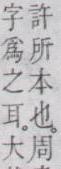 許所本也。周
字爲之耳。大